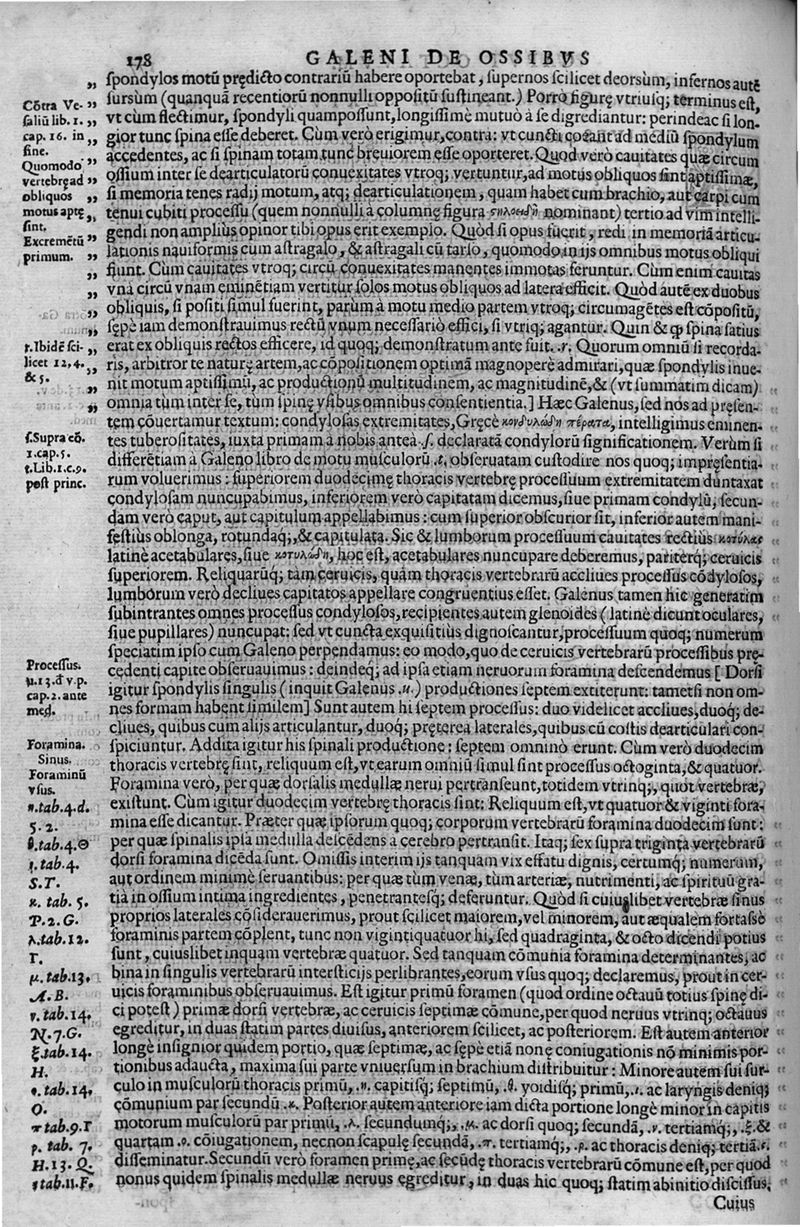 178 GALENI DE OSSIBVS
„ spondylos motũ prędicto contrariũ habere oportebat, supernos scilicet deorsùm, infernos autẽ
Cõtra Ve- „ sursùm (quanquã recentiorũ nonnulli oppositũ sustineant.) Porrò figurę vtriusq; terminus est,
saliũ lib. 1. „ vt cùm flectimur, spondyli quampossunt, longissimè mutuò à se digrediantur: perindeac si lon-
cap. 16. in „ gior tunc spina esse deberet. Cùm verò erigimur, contra: vt cuncti coëant ad mediũ spondylum
fine. „ accedentes, ac si spinam totam tunc breuiorem esse oporteret. Quod verò cauitates quæ circum
Quomodo „ ossium inter se dearticulatorũ conuexitates vtroq; vertuntur, ad motus obliquos sint aptissimæ,
vertebrę ad „ si memoria tenes radij motum, atq; dearticulationem, quam habet cum brachio, aut carpi cum
obliquos „ tenui cubiti processu (quem nonnulli à columnę figura nominant) tertio ad vim intelli-
motus aptę „ gendi non amplius opinor tibi opus erit exemplo. Quòd si opus fuerit, redi in memoriã articu-
sint.
Excremẽtũ „ lationis nauiformis cum astragalo, & astragali cũ tarso, quomodo in ijs omnibus motus obliqui
primum. „ fiunt. Cùm cauitates vtroq; circũ conuexitates manentes immotas feruntur. Cùm enim cauitas
„ vna circũ vnam eminẽtiam vertitur solos motus obliquos ad latera efficit. Quòd autẽ ex duobus
„ obliquis, si positi simul fuerint, parùm à motu medio partem vtroq; circumagẽtes est cõpositũ,
„ sępè iam demonstrauimus rectũ vnum necessariò effici, si vtriq; agantur. Quin & ꝙ spina satius
r. Ibidẽ sci- „ erat ex obliquis rectos efficere, id quoq; demonstratum ante fuit. .r. Quorum omniũ si recorda-
licet 12.4. „ ris, arbitror te naturę artem, ac cõpositionem optimã magnoperè admirari, quæ spondylis inue-
& 5. „ nit motum aptissimũ, ac productionũ multitudinem, ac magnitudinẽ, & (vt summatim dicam)
„ omnia tùm inter se, tùm spinę vsibus omnibus consentientia.] Hæc Galenus, sed nos ad pręsen-
tem cõuertamur textum: condylosas extremitates, Gręcè κονδυλώδη πέρατα, intelligimus eminen-
s. Supra eõ. tes tuberositates, iuxta primam à nobis antea .s. declaratã condylorũ significationem. Verùm si
1. cap. 5.
t. Lib. 1. c. 9. differẽtiam à Galeno libro de motu musculorũ .t. obseruatam custodire nos quoq; impręsentia-
post princ. rum voluerimus: superiorem duodecimę thoracis vertebrę processuum extremitatem duntaxat
condylosam nuncupabimus, inferiorem verò capitatam dicemus, siue primam condylũ, secun-
dam verò caput, aut capitulum appellabimus: cum superior obscurior sit, inferior autem mani-
festius oblonga, rotundaq;, & capitulata. Sic & lumborum processuum cauitates rectius κοτύλας
latinè acetabulares, siue κοτυλώδη, hoc est, acetabulares nuncupare deberemus, pariterq; ceruicis
superiorem. Reliquarũq; tàm ceruicis, quàm thoracis vertebrarũ accliues processus cõdylosos,
lumborum verò decliues capitatos appellare congruentius esset. Galenus tamen hic generatim
subintrantes omnes processus condylosos, recipientes autem glenoides (latinè dicunt oculares,
siue pupillares) nuncupat: sed vt cuncta exquisitius dignoscantur, processuum quoq; numerum
Processus. speciatim ipso cum Galeno perpendamus: eo modo, quo de ceruicis vertebrarũ processibus prę-
u. 13. đ v. p. cędenti capite obseruauimus: deindeq; ad ipsa etiam neruorum foramina descendemus [ Dorsi
cap. 2. ante igitur spondylis singulis (inquit Galenus .u.) productiones septem extiterunt: tametsi non om-
med. nes formam habent similem] Sunt autem hi septem processus: duo videlicet accliues, duoq; de-
cliues, quibus cum alijs articulantur, duoq; pręterea laterales, quibus cũ costis dearticulari con-
Foramina. spiciuntur. Addita igitur his spinali productione: septem omninò erunt. Cùm verò duodecim
Sinus. thoracis vertebrę sint, reliquum est, vt earum omniũ simul sint processus octoginta, & quatuor.
Foraminũ
vsus. Foramina verò, per quæ dorsalis medullæ nerui pertranseunt, totidem vtrinq;, quot vertebræ,
n. tab. 4. d. existunt. Cùm igitur duodecim vertebrę thoracis sint: Reliquum est, vt quatuor & viginti fora-
5. 2. mina esse dicantur. Præter quæ ipsorum quoq; corporum vertebrarũ foramina duodecim sunt:
θ. tab. 4. Θ per quæ spinalis ipsa medulla descẽdens a cerebro pertransit. Itaq; sex supra triginta vertebrarũ
ι. tab. 4. dorsi foramina dicẽda sunt. Omissis interim ijs tanquam vix effatu dignis, certumq; numerum,
S. T. aut ordinem minimè seruantibus: per quæ tùm venæ, tùm arteriæ, nutrimenti, ac spirituũ gra-
κ. tab. 5. tia in ossium intima ingredientes, penetrantesq; deferuntur. Quòd si cuiuslibet vertebræ sinus
P. 2. G. proprios laterales cõsiderauerimus, prout scilicet maiorem, vel minorem, aut æqualem fortassè
λ. tab. 12. foraminis partem cõplent, tunc non vigintiquatuor hi, sed quadraginta, & octo dicendi potius
Γ. sunt, cuiuslibet inquam vertebræ quatuor. Sed tanquam cõmunia foramina determinantes, ac
μ. tab. 13. bina in singulis vertebrarũ interstitijs perlibrantes, eorum vsus quoq; declaremus, prout in cer-
A. B. uicis foraminibus obseruauimus. Est igitur primũ foramen (quod ordine octauũ totius spinę di-
ν. tab. 14. ci potest) primæ dorsi vertebræ, ac ceruicis septimæ cõmune, per quod neruus vtrinq; octauus
N. 7. G. egreditur, in duas statim partes diuisus, anteriorem scilicet, ac posteriorem. Est autem anterior
ξ. tab. 14. longè insignior quidem portio, quæ septimæ, ac sępè etiã nonę coniugationis nõ minimis por-
H. tionibus adaucta, maxima sui parte vniuersum in brachium distribuitur: Minore autem sui sur-
ο. tab. 14. culo in musculorũ thoracis primũ, .n. capitisq; septimũ, .θ. yoidisq; primũ, .ι. ac laryngis deniq;
O. cõmunium par secundũ .κ. Posterior autem anteriore iam dicta portione longè minor in capitis
π tab. 9. Γ motorum musculorũ par primũ, .λ. secundumq;, .μ. ac dorsi quoq; secundã, .ν. tertiamq;, .ξ. &
ρ. tab. 7. quartam .ο. cõiugationem, necnon scapulę secundã, .π. tertiamq;, .ρ. ac thoracis deniq; tertiã .ς.
H. 13. Q. disseminatur. Secundũ verò foramen primę, ac secũdę thoracis vertebrarũ cõmune est, per quod
ς tab. 11. F. nonus quidem spinalis medullæ neruus egreditur, in duas hic quoq; statim ab initio discissus,
Cuius